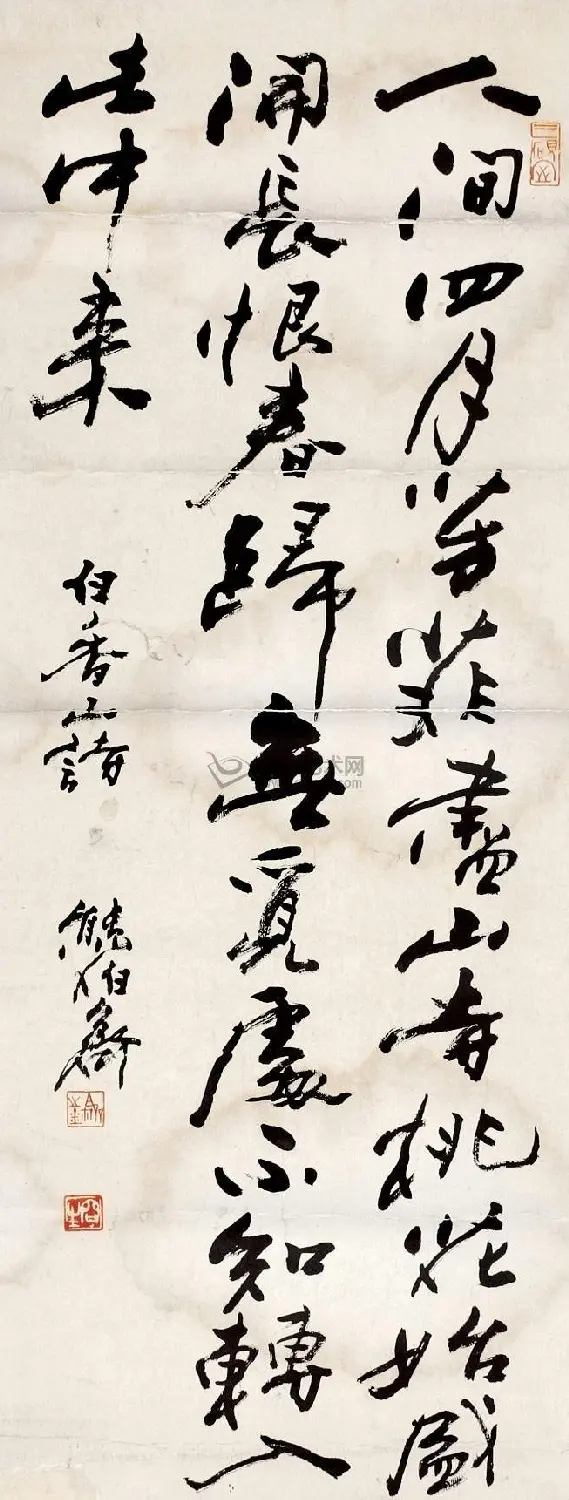 人间四月芳菲盡山寺桃花始盛
開長恨春歸無覓處不知轉入
此中来
白香山詩